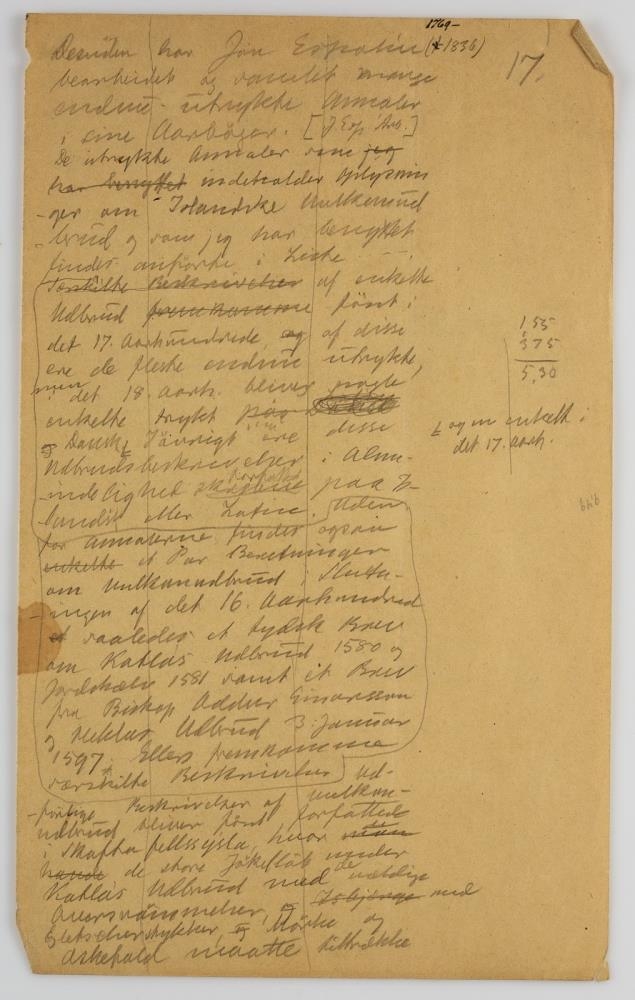 1769-
Desuden har Jón Espolin († 1836)
17.
bearbeidet og samlet mange
endnu utrykte Annaler
i sine Aarbøger. [J. Esp. Árb.]
De utrykte Annaler som jeg
har benyttet indeholder Oplysnin
-ger om Islandske Vulkanud
-brud og som jeg har benyttet
findes anførte i Liste
Særskilte Beskrivelser af enkelte
Udbrud fremkomme først i
det 17. Aarhundrede, og af disse
ere de fleste endnu utrykte,
men i det 18. Aarh. blive nogle
enkelte trykt paa
og Dansk. Iøvrigt ere disse
og en enkelt i
det 17. Aarh.
Udbrudsbeskrivelser i Alm-
-indelighed skrevne forfattede paa Is-
-landsk eller Latin. Uden
for Annalerne findes ogsaa
enkelte et Par Beretninger
om Vulkanudbrud i Slutn-
-ingen af det 16. Aarhundred
et saaledes et tydsk Brev
om Katlas Udbrud 1580 og
Jordskælv 1581 samt et Brev
fra Biskop Oddur Einarsson
og Heklas Udbrud 3. Januar
1597. Ellers fremkomme
særskilte Beskrivelser ud-
-førlige Beskrivelser af Vulkan-
udbrud bliver først forfattede
i Skaptafellssysla, hvor man
havde de store Jökelløb under
Katlas Udbrud med de vældige
Oversvömmelser, og Isbjerge med
Gletscherstykker, og Mörke og
Askefald maatte tiltrække
1,55
3 75
5,30